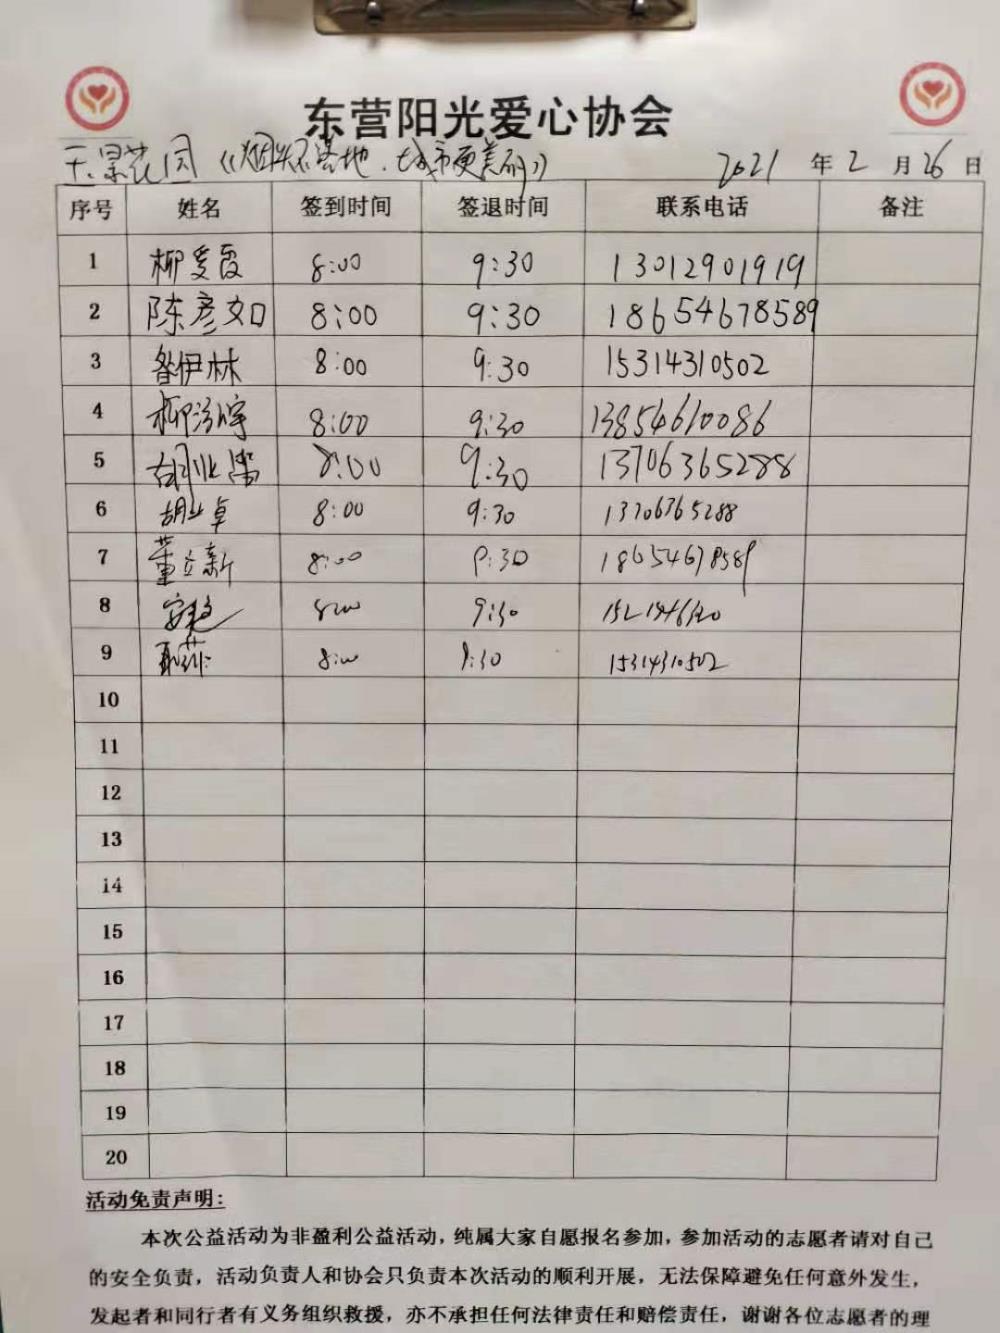 东营阳光爱心协会
天景花园《烟头不落地、城市更美丽》 2021 年 2 月 26 日
序号 姓名 签到时间 签退时间 联系电话 备注
1 柳爱霞 8:00 9:30 13012901919
2 陈彦如 8:00 9:30 18654678589
3 昝伊林 8:00 9:30 15314310502
4 柳 8:00 9:30 13854610086
5 胡业 8:00 9:30 13706365288
6 胡业卓 8:00 9:30
7 董立新 8:00 9:30 18654678589
8 8:00 9:30
9 8:00 9:30 15314310502
10
11
12
13
14
15
16
17
18
19
20
活动免责声明:
本次公益活动为非盈利公益活动，纯属大家自愿报名参加，参加活动的志愿者请对自己
的安全负责，活动负责人和协会只负责本次活动的顺利开展，无法保障避免任何意外发生，
发起者和同行者有义务组织救援，亦不承担任何法律责任和赔偿责任，谢谢各位志愿者的理